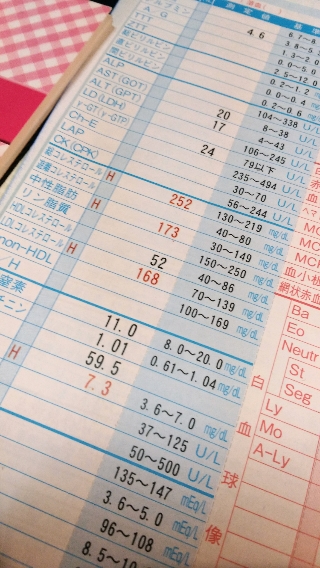 測定値 基準
6.7~8.
アルブミン 4.6 3.8~5
A/G 1.3~2.
TTT 0.0~5.0
ZTT 2.5~12.0
総ビリルビン 0.2~1.2
直ビリルビン 0.0~0.4
間ビリルビン 0.2~0.6
ALP 104~338 U/L
AST(GOT) 20 8~38 U/L
ALT(GPT) 17 4~43 U/L
LD(LDH) 106~245 U/L
γ-GT(γ-GTP) 24 79以下 U/L
Ch-E 235~494 U/L
LAP 30~70 U/L
CK(CPK) 56~244 U/L
総コレステロール H 252 130~219 mg/dL
遊離コレステロール 40~80 mg/dL
中性脂肪 H 173 30~149 mg/dL
リン脂質 150~250 mg/dL
HDLコレステロール 52 40~86 mg/dL
LDLコレステロール H 168 70~139 mg/dL
non-HDL 100~169 mg/dL
/H
窒素 11.0 8.0~20.0 mg/dL
チニン 1.01 0.61~1.04 mg/dL
59.5
H 7.3 3.6~7.0 mg/dL
37~125 U/L
50~500 U/L
135~147 mEq/L
3.6~5.0 mEq/L
96~108 mEq/L
8.5~10
白
赤
ヘマ
MC
MCH
MCH
血小板
網状赤血
白血球像
Ba
Eo
Neutr
St
Seg
Ly
Mo
A-Ly